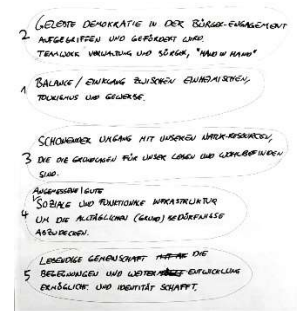 2 GELEBTE DEMOKRATIE IN DER BÜRGER-ENGAGEMENT
AUFGEGRIFFEN UND GEFÖRDERT WIRD.
TEAMWORK VERWALTUNG UND BÜRGER, "HAND IN HAND"
1 BALANCE / EINKLANG ZWISCHEN EINHEIMISCHEN,
TOURISMUS UND GEWERBE.
SCHONENDER UMGANG MIT UNSEREN NATUR-RESOURCEN,
3 DIE DIE GRUNDLAGEN FÜR UNSER LEBEN UND WOHLBEFINDEN
SIND.
ANGEMESSENE / GUTE
SOZIALE UND FUNKTIONALE INFRASTRUKTUR
4 UM DIE ALLTÄGLICHEN (GRUND) BEDÜRFNISSE
ABZUDECKEN.
LEBENDIGE GEMEINSCHAFT DIE
5 BEGEGNUNGEN UND WEITERENTWICKLUNG
ERMÖGLICHT UND IDENTITÄT SCHAFFT.